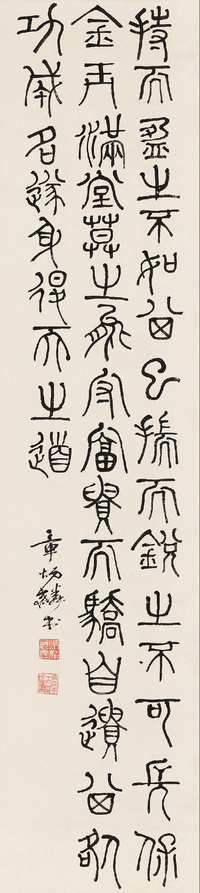 持而盈之不如其已揣而銳之不可長保
金玉滿堂莫之能守富貴而驕自遺其咎
功成名遂身退天之道
章炳麟書